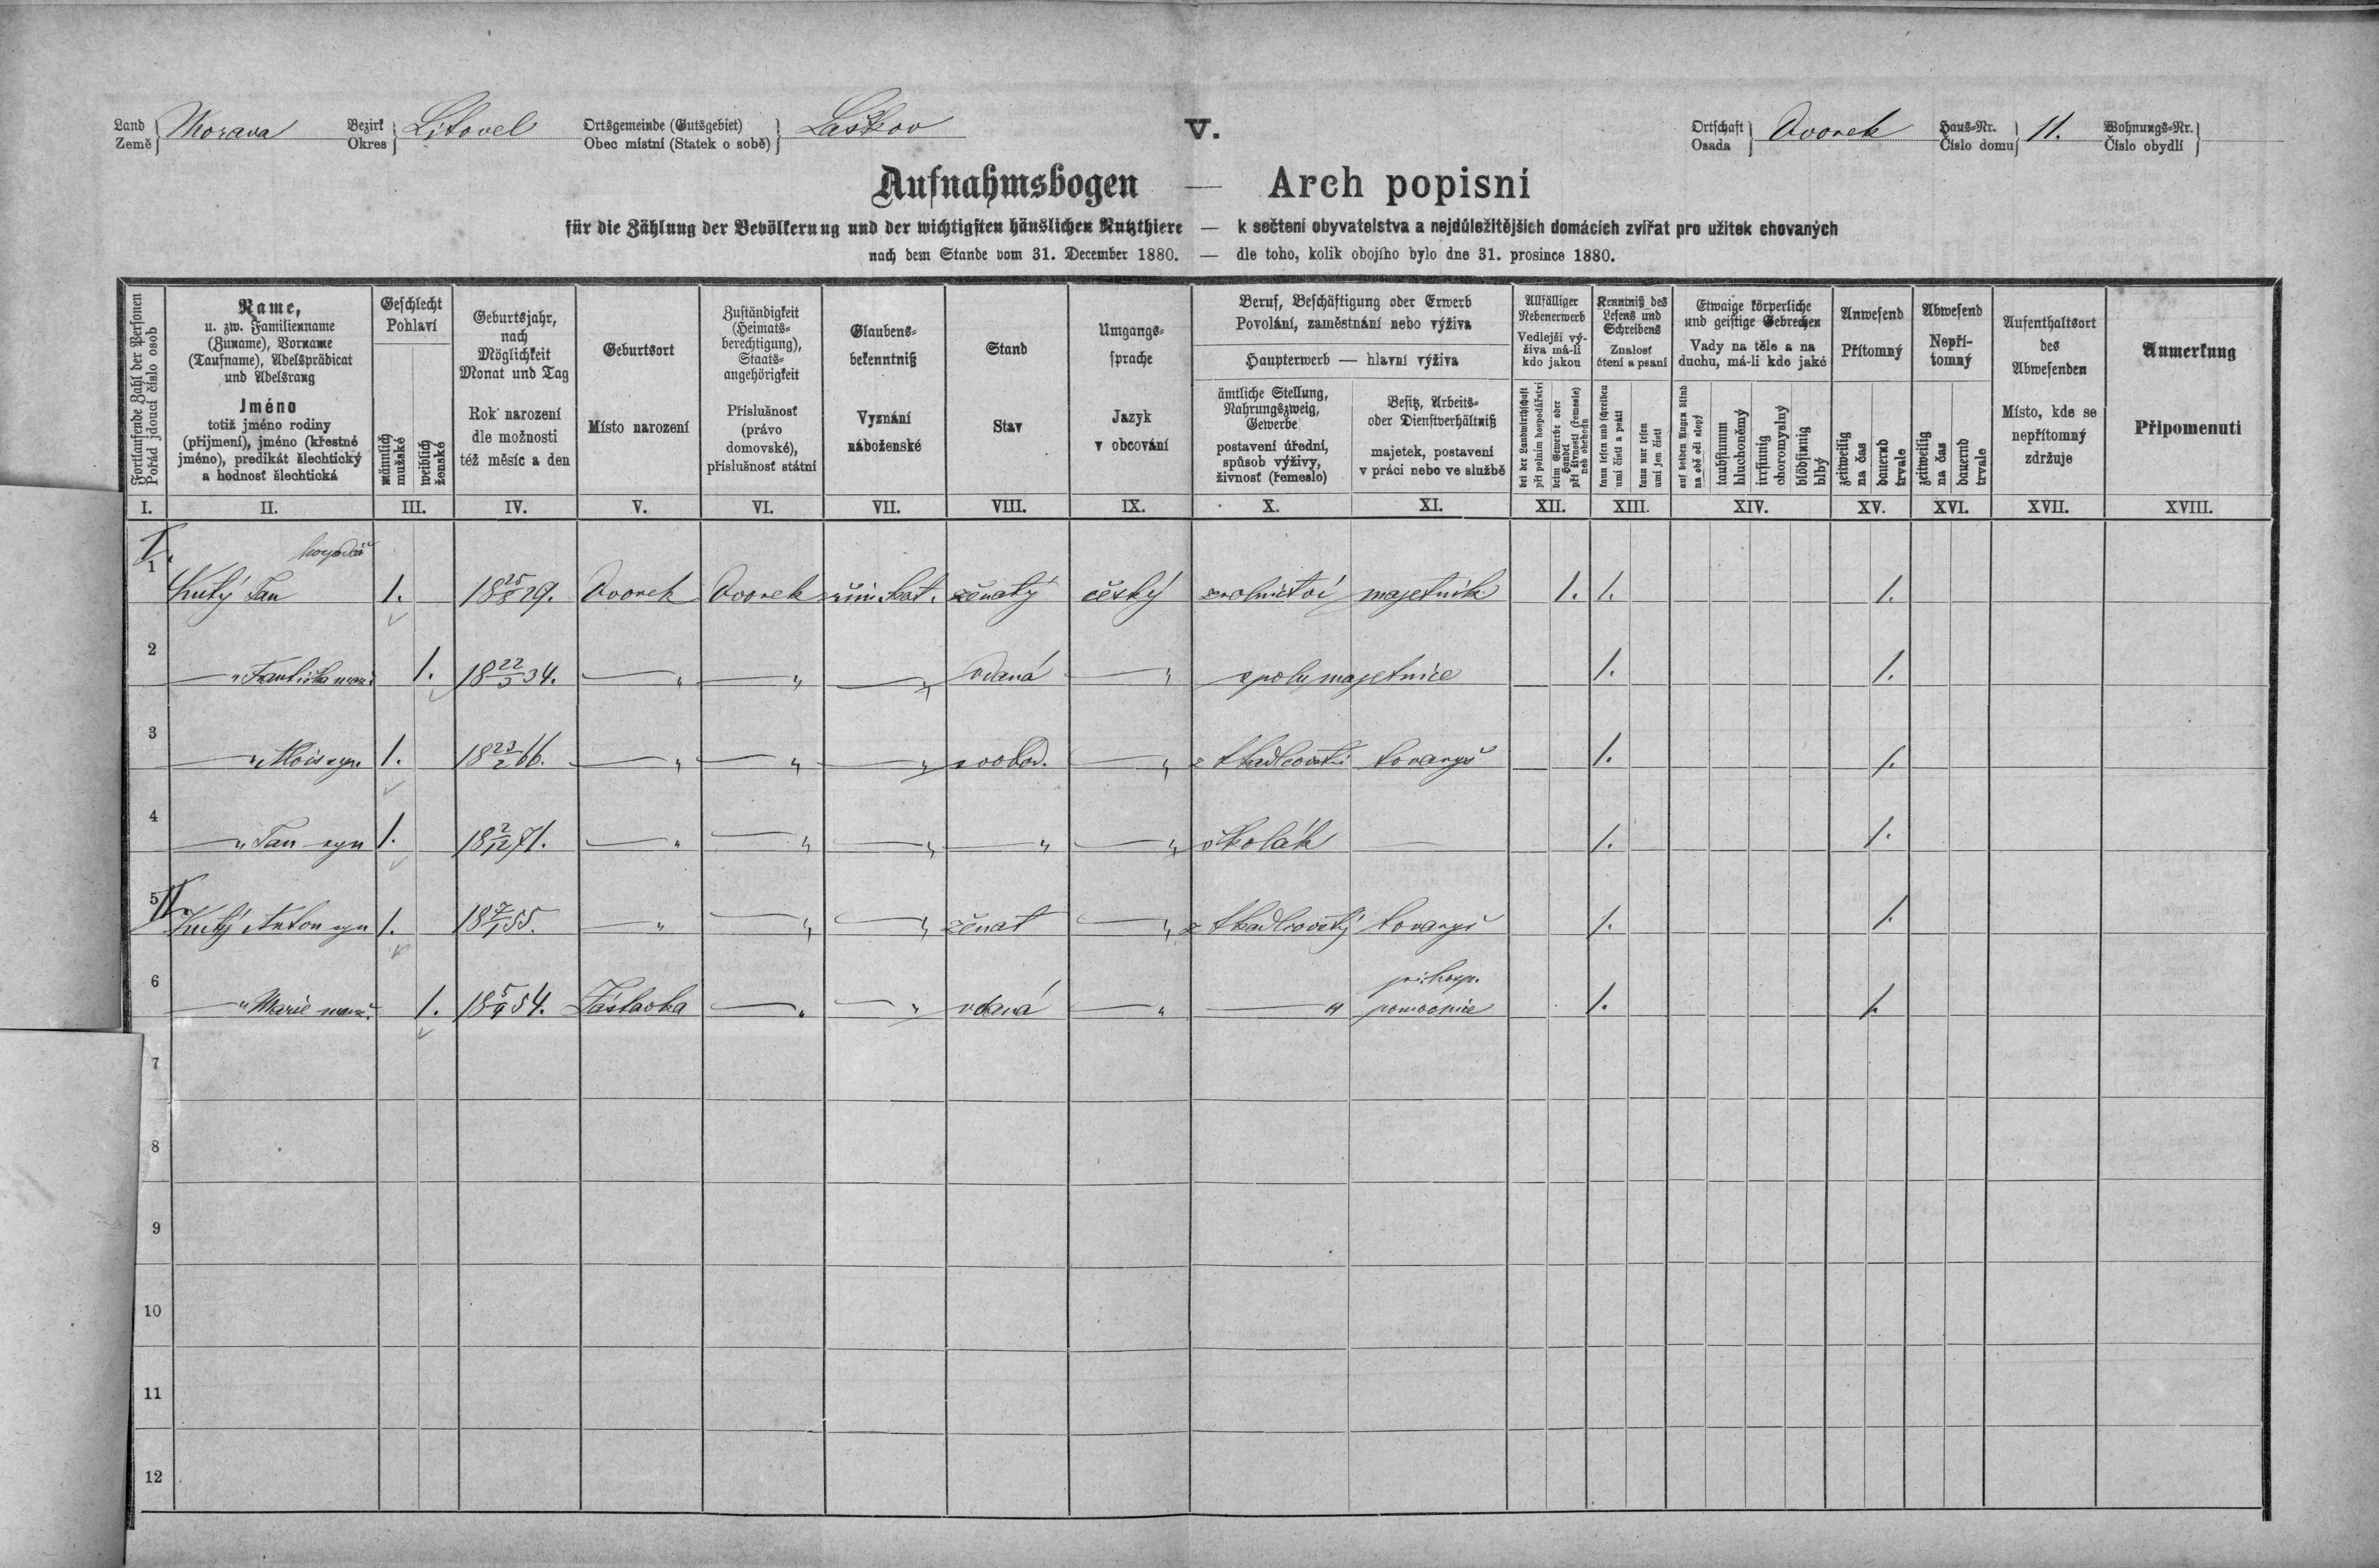 Land Morava Bezirk Litovel Ortsgemeinde (Gutsgebiet) Laškov V. Ortschaft Dvorek Haus-Nr. 11. Wohnungs-Nr.
Země Okres Obec místní (Statek o sobě) Osada Číslo domu Číslo obydlí
Aufnahmsbogen — Arch popisní
für die Zählung der Bevölkerung und der wichtigsten häuslichen Nutzthiere — k sečtení obyvatelstva a nejdůležitějších domácích zvířat pro užitek chovaných
nach dem Stande vom 31. December 1880. — dle toho, kolik obojího bylo dne 31. prosince 1880.
Fortlaufende Zahl der Personen
Pořád jdoucí číslo osob
Name,
u. zw. Familienname
(Zuname), Vorname
(Taufname), Adelsprädicat
und Adelsrang
Jméno
totiž jméno rodiny
(přijmení), jméno (křestné
jméno), predikát šlechtický
a hodnosť šlechtická
Geschlecht
Pohlaví
männlich
mužské
weiblich
ženské
Geburtsjahr,
nach
Möglichkeit
Monat und Tag
Rok narození
dle možnosti
též měsíc a den
Geburtsort
Místo narození
Zuständigkeit
(Heimats-
berechtigung),
Staats-
angehörigkeit
Příslušnosť
(právo
domovské),
příslušnosť státní
Glaubens-
bekenntniß
Vyznání
náboženské
Stand
Stav
Umgangs-
sprache
Jazyk
v obcování
Beruf, Beschäftigung oder Erwerb
Povolání, zaměstnání nebo výživa
Haupterwerb — hlavní výživa
ämtliche Stellung,
Nahrungszweig,
Gewerbe
postavení úřední,
spůsob výživy,
živnosť (řemeslo)
Besitz, Arbeits-
oder Dienstverhältniß
majetek, postavení
v práci nebo ve službě
Allfälliger
Nebenerwerb
Vedlejší vý-
živa má-li
kdo jakou
bei der Landwirthschaft
při polním hospodářství
beim Gewerbe oder
Handel
při živnosti (řemesle)
neb obchodu
Kenntniß des
Lesens und
Schreibens
Znalosť
čtení a psaní
kann lesen und schreiben
umí čísti a psáti
kann nur lesen
umí jen čísti
Etwaige körperliche
und geistige Gebrechen
Vady na těle a na
duchu, má-li kdo jaké
auf beiden Augen blind
na obě oči slepý
taubstumm
hluchoněmý
irrsinnig
choromyslný
blödsinnig
blbý
Anwesend
Přítomný
zeitweilig
na čas
dauernd
trvale
Abwesend
Nepří-
tomný
zeitweilig
na čas
dauernd
trvale
Aufenthaltsort
des
Abwesenden
Místo, kde se
nepřítomný
zdržuje
Anmerkung
Připomenutí
I. II. III. IV. V. VI. VII. VIII. IX. X. XI. XII. XIII. XIV. XV. XVI. XVII. XVIII.
I.
1 Kutý Jan 1. 18 25/8 29. Dvorek Dvorek řím. kat. ženatý český z rolnictví majetník 1. 1. 1.
2 —„ Františka manž. 1. 18 22/3 34. —„ —„ —„ vdaná —„ spolumajetnice 1. 1.
3 —„ Alois syn 1. 18 23/2 66. —„ —„ —„ svobod. —„ z tkadlcovství tovaryš 1. 1.
4 —„ Jan syn 1. 18 2/12 71. —„ —„ —„ —„ —„ školák — 1. 1.
II.
5 Kutý Anton syn 1. 18 7/1 55. —„ —„ —„ ženat —„ z tkadlcovství tovaryš 1. 1.
při hosp.
6 —„ Marie manž. 1. 18 5/9 54. Zástavka —„ —„ vdaná —„ —„ pomocnice 1. 1.
7
8
9
10
11
12